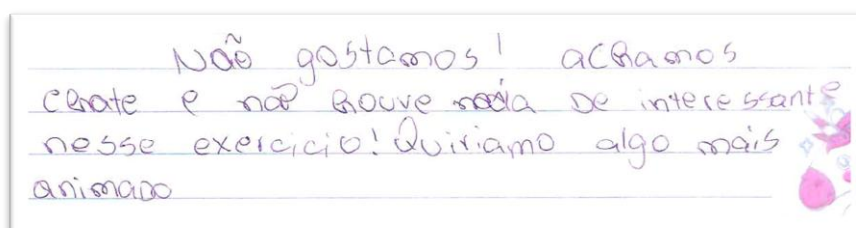 Não gostamos! achamos
chate e não houve nada de interessante
nesse exercicio! Quiriamo algo mais
animado